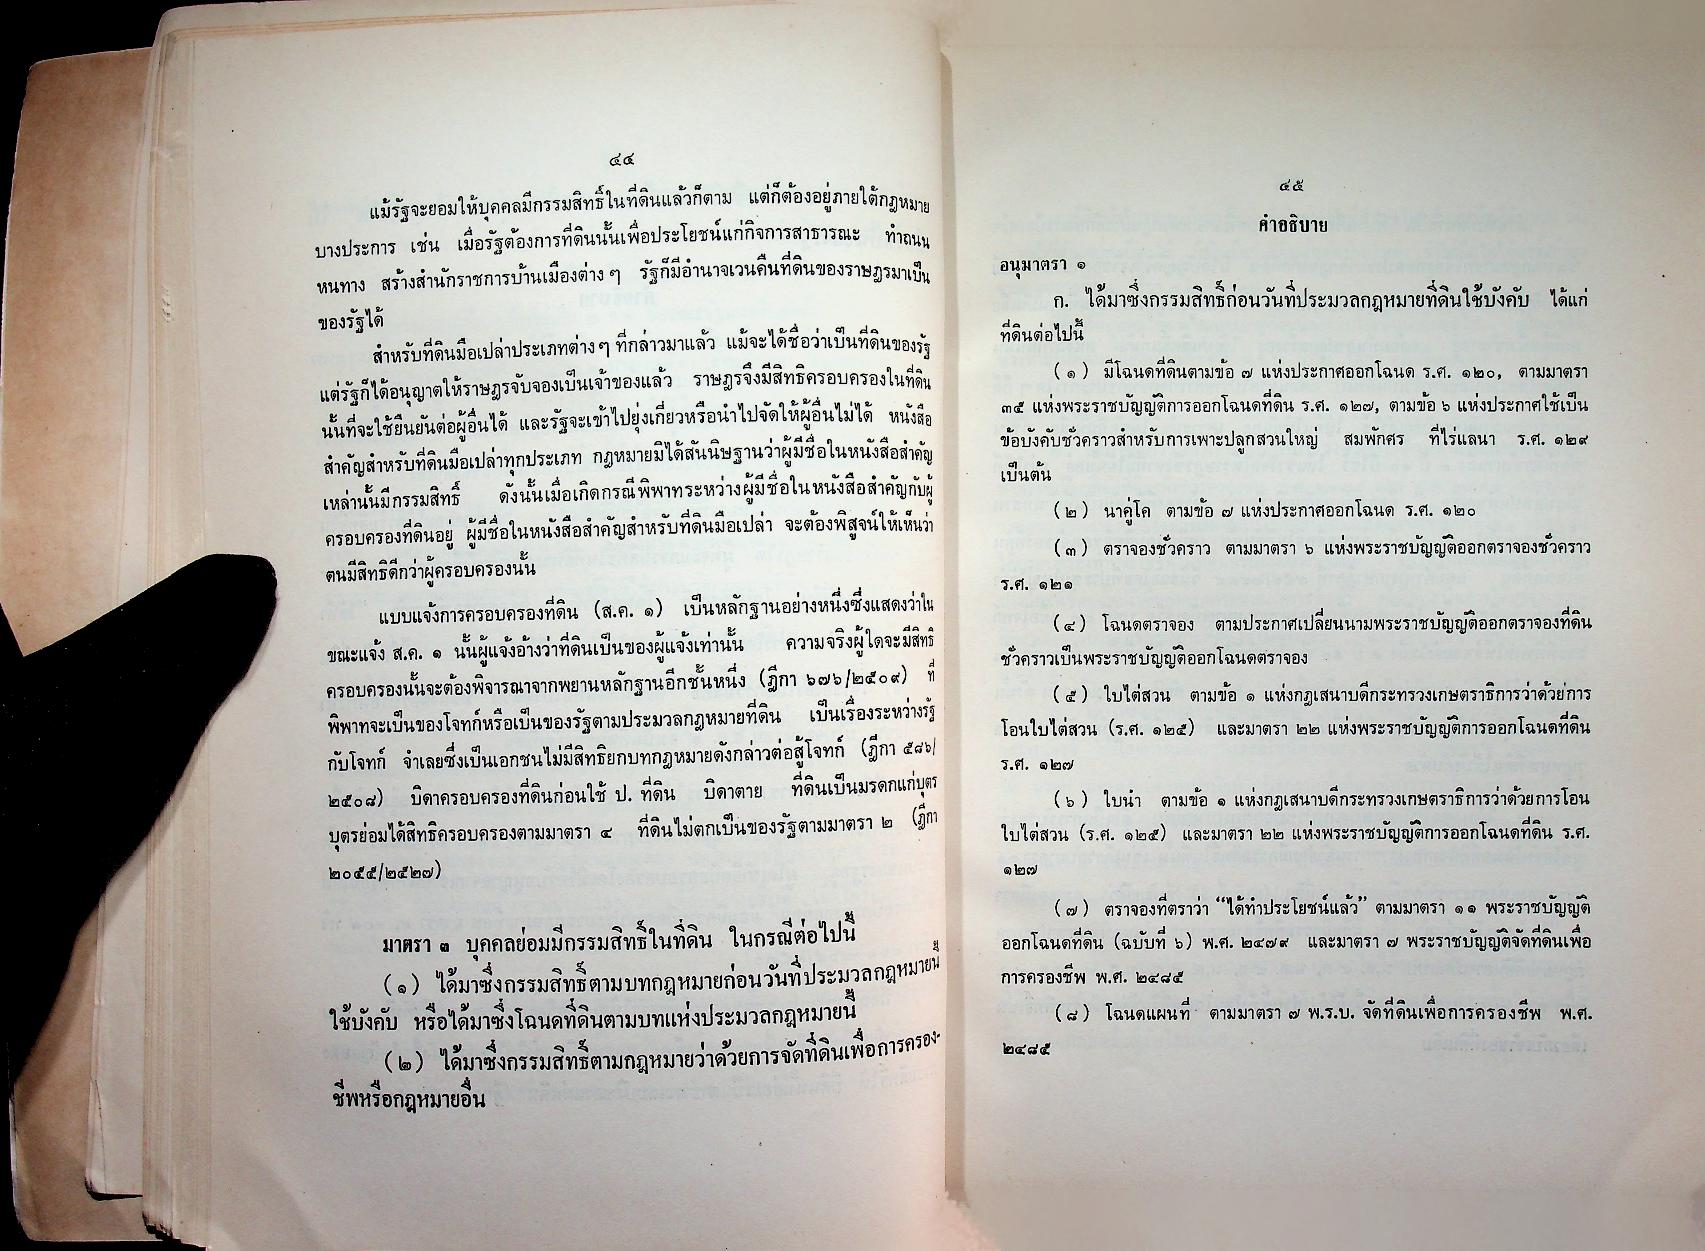 ๔๔
แม้รัฐจะยอมให้บุคคลมีกรรมสิทธิ์ในที่ดินแล้วก็ตาม แต่ก็ต้องอยู่ภายใต้กฎหมาย
บางประการ เช่น เมื่อรัฐต้องการที่ดินนั้นเพื่อประโยชน์แก่กิจการสาธารณะ ทำถนน
หนทาง สร้างสำนักราชการบ้านเมืองต่าง ๆ รัฐก็มีอำนาจเวนคืนที่ดินของราษฎรมาเป็น
ของรัฐได้
สำหรับที่ดินมือเปล่าประเภทต่าง ๆ ที่กล่าวมาแล้ว แม้จะได้ชื่อว่าเป็นที่ดินของรัฐ
แต่รัฐก็ได้อนุญาตให้ราษฎรจับจองเป็นเจ้าของแล้ว ราษฎรจึงมีสิทธิครอบครองในที่ดิน
นั้นที่จะใช้ยืนยันต่อผู้อื่นได้ และรัฐจะเข้าไปยุ่งเกี่ยวหรือนำไปจัดให้ผู้อื่นไม่ได้ หนังสือ
สำคัญสำหรับที่ดินมือเปล่าทุกประเภท กฎหมายมิได้สันนิษฐานว่าผู้มีชื่อในหนังสือสำคัญ
เหล่านั้นมีกรรมสิทธิ์ ดังนั้นเมื่อเกิดกรณีพิพาทระหว่างผู้มีชื่อในหนังสือสำคัญกับผู้
ครอบครองที่ดินอยู่ ผู้มีชื่อในหนังสือสำคัญสำหรับที่ดินมือเปล่า จะต้องพิสูจน์ให้เห็นว่า
ตนมีสิทธิดีกว่าผู้ครอบครองนั้น
แบบแจ้งการครอบครองที่ดิน (ส.ค. ๑) เป็นหลักฐานอย่างหนึ่งซึ่งแสดงว่าใน
ขณะแจ้ง ส.ค. ๑ นั้นผู้แจ้งอ้างว่าที่ดินเป็นของผู้แจ้งเท่านั้น ความจริงผู้ใดจะมีสิทธิ
ครอบครองนั้นจะต้องพิจารณาจากพยานหลักฐานอีกชั้นหนึ่ง (ฎีกา ๖๗๖/๒๕๐๙) ที่
พิพาทจะเป็นของโจทก์หรือเป็นของรัฐตามประมวลกฎหมายที่ดิน เป็นเรื่องระหว่างรัฐ
กับโจทก์ จำเลยซึ่งเป็นเอกชนไม่มีสิทธิยกบทกฎหมายดังกล่าวต่อสู้โจทก์ (ฎีกา ๕๘๖/
๒๕๐๘) บิดาครอบครองที่ดินก่อนใช้ ป. ที่ดิน บิดาตาย ที่ดินเป็นมรดกแก่บุตร
บุตรย่อมได้สิทธิครอบครองตามมาตรา ๔ ที่ดินไม่ตกเป็นของรัฐตามมาตรา ๒ (ฎีกา
๒๐๕๕/๒๕๒๗)
มาตรา ๓ บุคคลย่อมมีกรรมสิทธิ์ในที่ดิน ในกรณีต่อไปนี้
(๑) ได้มาซึ่งกรรมสิทธิ์ตามบทกฎหมายก่อนวันที่ประมวลกฎหมายนี้
ใช้บังคับ หรือได้มาซึ่งโฉนดที่ดินตามบทแห่งประมวลกฎหมายนี้
(๒) ได้มาซึ่งกรรมสิทธิ์ตามกฎหมายว่าด้วยการจัดที่ดินเพื่อการครอง-
ชีพหรือกฎหมายอื่น
๔๕
คำอธิบาย
อนุมาตรา ๑
ก. ได้มาซึ่งกรรมสิทธิ์ก่อนวันที่ประมวลกฎหมายที่ดินใช้บังคับ ได้แก่
ที่ดินต่อไปนี้
(๑) มีโฉนดที่ดินตามข้อ ๗ แห่งประกาศออกโฉนด ร.ศ. ๑๒๐, ตามมาตรา
๓๕ แห่งพระราชบัญญัติการออกโฉนดที่ดิน ร.ศ. ๑๒๗, ตามข้อ ๖ แห่งประกาศใช้เป็น
ข้อบังคับชั่วคราวสำหรับการเพาะปลูกสวนใหญ่ สมพักศร ที่ไร่แลนา ร.ศ. ๑๒๙
เป็นต้น
(๒) นาคู่โค ตามข้อ ๗ แห่งประกาศออกโฉนด ร.ศ. ๑๒๐
(๓) ตราจองชั่วคราว ตามมาตรา ๖ แห่งพระราชบัญญัติออกตราจองชั่วคราว
ร.ศ. ๑๒๑
(๔) โฉนดตราจอง ตามประกาศเปลี่ยนนามพระราชบัญญัติออกตราจองที่ดิน
ชั่วคราวเป็นพระราชบัญญัติออกโฉนดตราจอง
(๕) ใบไต่สวน ตามข้อ ๑ แห่งกฎเสนาบดีกระทรวงเกษตราธิการว่าด้วยการ
โอนใบไต่สวน (ร.ศ. ๑๒๕) และมาตรา ๒๒ แห่งพระราชบัญญัติการออกโฉนดที่ดิน
ร.ศ. ๑๒๗
(๖) ใบนำ ตามข้อ ๑ แห่งกฎเสนาบดีกระทรวงเกษตราธิการว่าด้วยการโอน
ใบไต่สวน (ร.ศ. ๑๒๕) และมาตรา ๒๒ แห่งพระราชบัญญัติการออกโฉนดที่ดิน ร.ศ.
๑๒๗
(๗) ตราจองที่ตราว่า “ได้ทำประโยชน์แล้ว” ตามมาตรา ๑๑ พระราชบัญญัติ
ออกโฉนดที่ดิน (ฉบับที่ ๖) พ.ศ. ๒๔๗๙ และมาตรา ๗ พระราชบัญญัติจัดที่ดินเพื่อ
การครองชีพ พ.ศ. ๒๔๘๕
(๘) โฉนดแผนที่ ตามมาตรา ๗ พ.ร.บ. จัดที่ดินเพื่อการครองชีพ พ.ศ.
๒๔๘๕